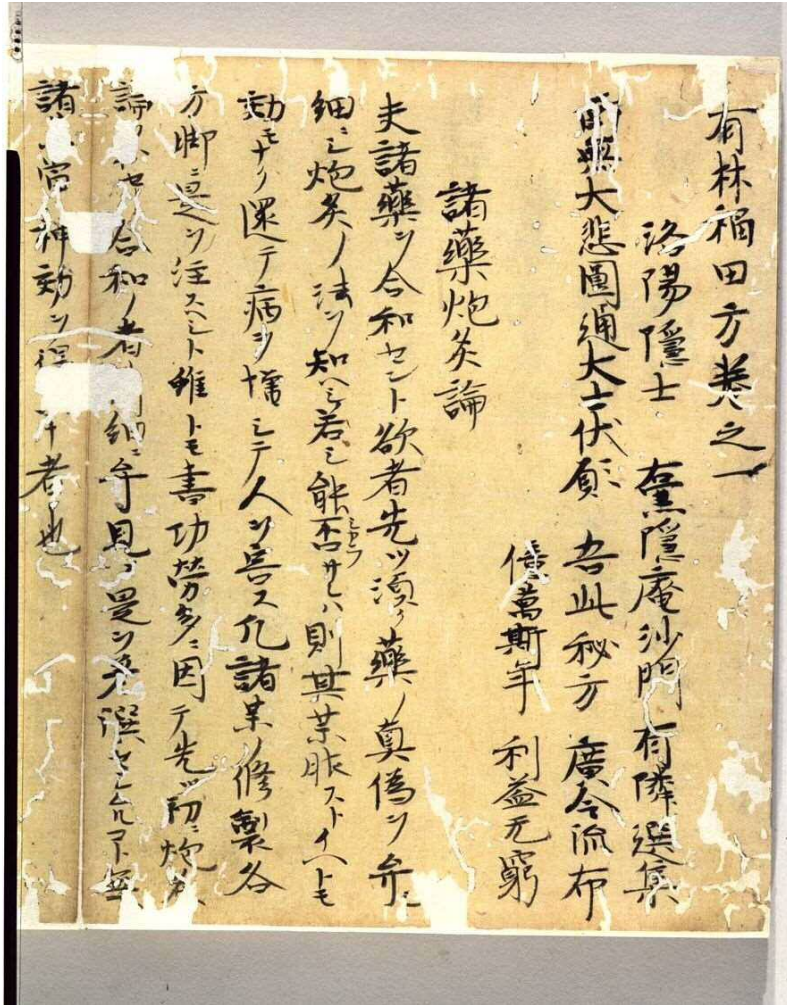 有林福田方巻之一
洛陽隠士 隠庵沙門 有隣選集
大悲圓通大士伏願 吾此秘方 廣令流布
億萬斯年 利益无窮
諸藥炮炙論
夫諸藥ヲ合和セント欲者先ツ須ク藥ノ真偽ヲ弁
細ニシ炮炙ノ法ヲ知ヘシ若シ能否サレハ則其薬服ストイヘトモ
効モナク還テ病ヲ増シテ人ヲ害ス凡諸薬ノ修製各
方脚ニ是ヲ注スヘシト雖トモ書功勞多ニ因テ先ツ初ニ炮炙
論 合和ノ者 細ニ弁見 是ヲ 選
諸 當 神効ヲ得 者也